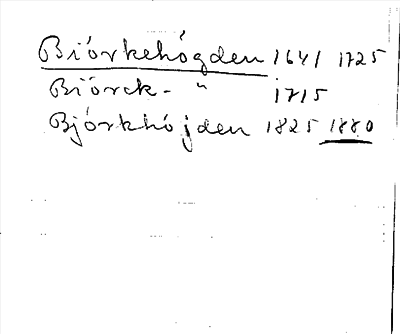 Biórkehógden 1641 1725
Biórck- " 1715
Bjórkhójden 1825 1880